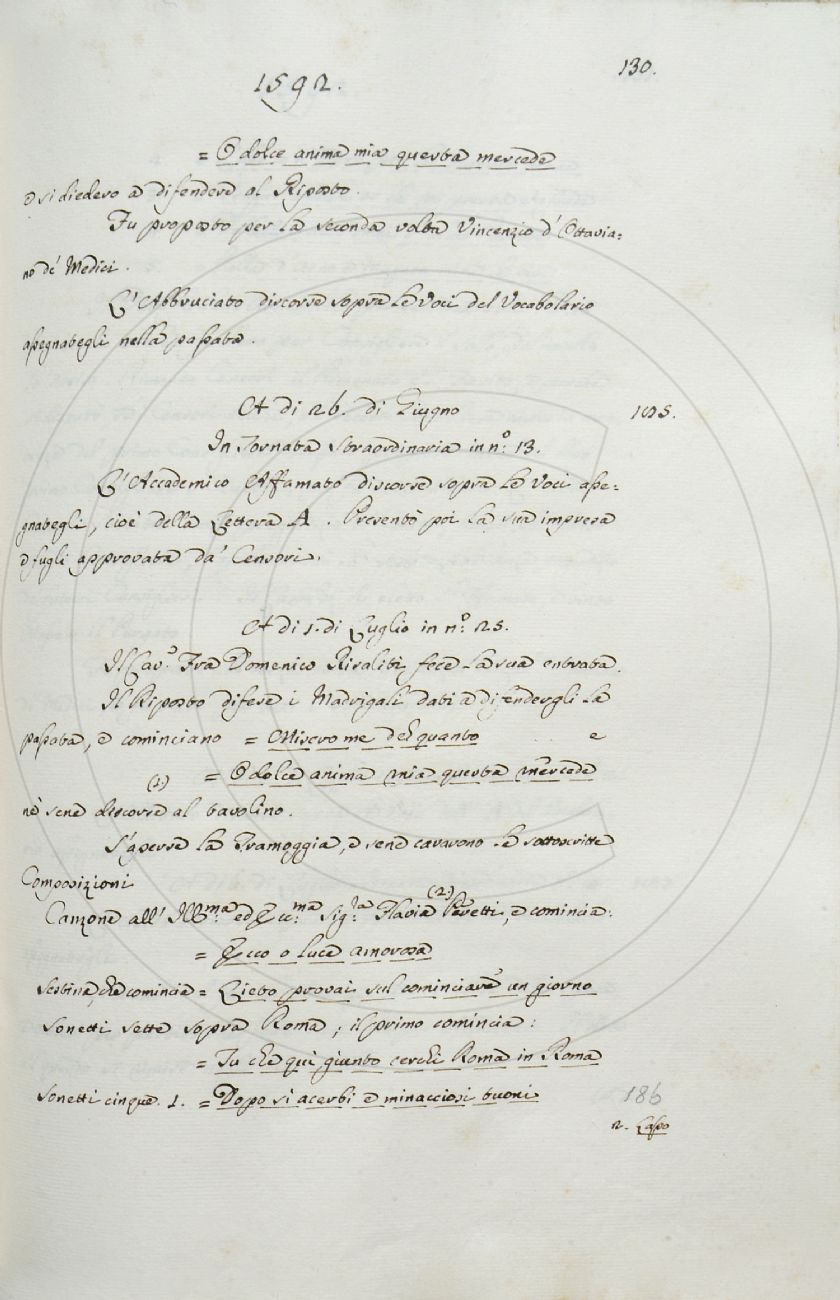 1592.
130.
= O dolce anima mia questa mercede
e si diedero a difendere al Riposto.
Fu proposto per la seconda volta Vincenzio d'Ottavia=
no de' Medici.
L'Abbruciato discorse sopra le Voci del Vocabolario
assegnategli nella passata.
A di 26. di Giugno
105.
In Tornata straordinaria in n.° 13.
L'Accademico Affamato discorse sopra le Voci asse=
gnategli, cioè della Lettera A. Presentò poi la sua impresa
e fugli approvata da' Censori.
A di 1. di Luglio in n.° 25.
Il Cav.e Fra Domenico Risaliti fece la sua entrata.
Il Riposto difese i Madrigali dati a difendergli la
passata, e cominciano = Misero me del quanto e
(1) = O dolce anima mia questa mercede
nè sene discorse al tavolino.
S'aperse la Tramoggia, e sene cavarono le sottoscritte
Composizioni
Canzone all' Ill.ma ed Ecc.ma Sig.ra Flavia (2) Peretti, e comincia:
= Ecco o luce amorosa
Sestina, che comincia = Lieto provai sul cominciare un giorno
Sonetti sette sopra Roma; il primo comincia:
= Tu che qui giunto cerchi Roma in Roma
Sonetti cinque. 1. = Dopo si acerbi e minacciosi tuoni
186
2. Lasso